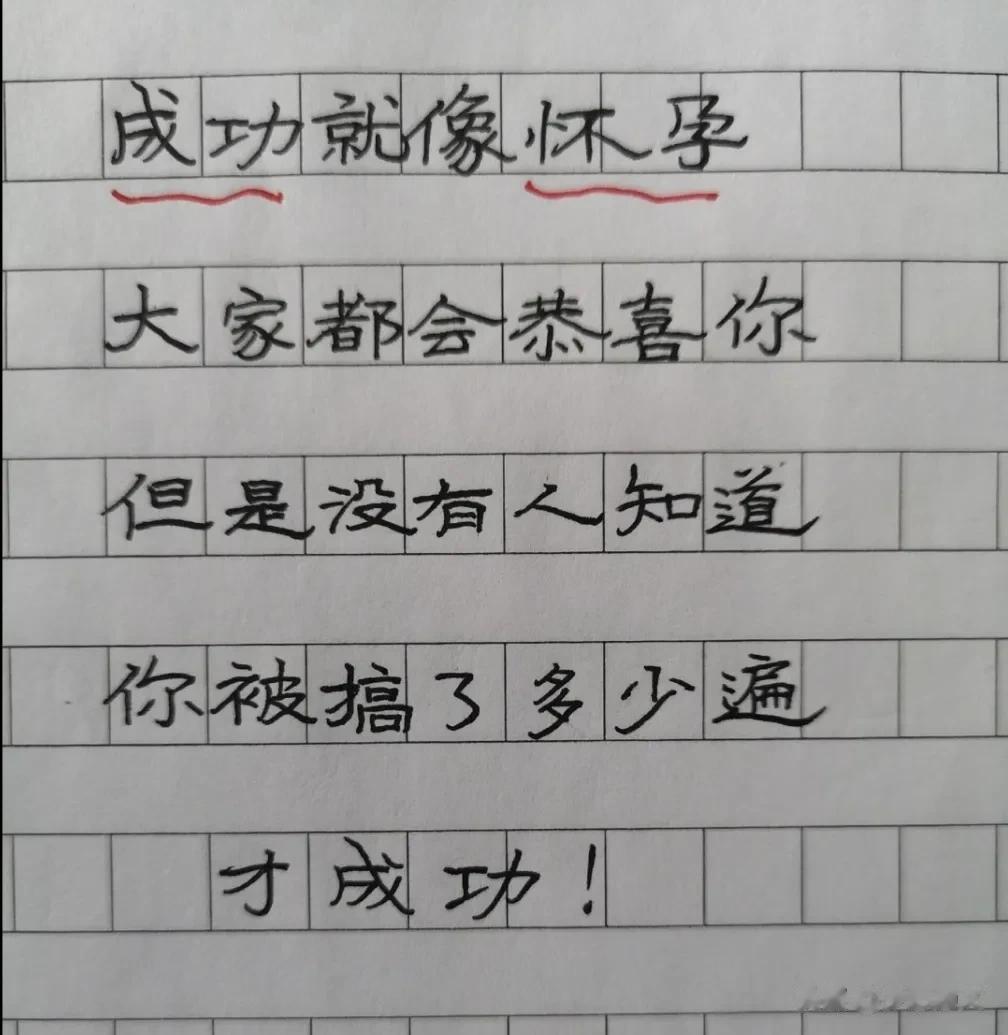 成功就像怀孕
大家都会恭喜你
但是没有人知道
你被搞了多少遍
才成功！